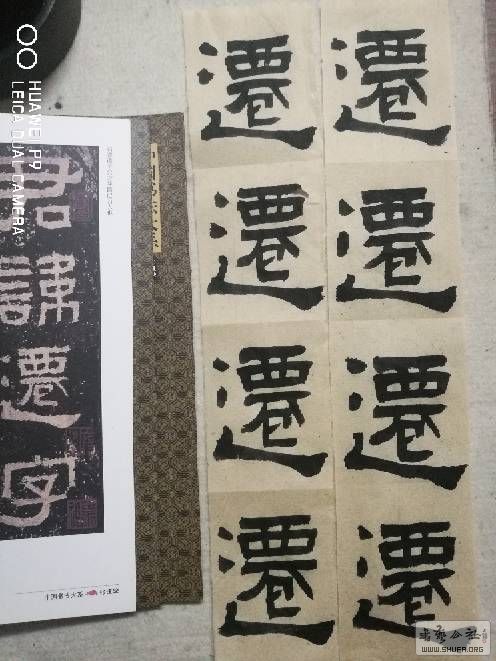 HUAWEI P9
LEICA DUAL CAMERA
君諱遷字
遷遷遷遷
遷遷遷遷
書藝公社
WWW.SHUFA.ORG